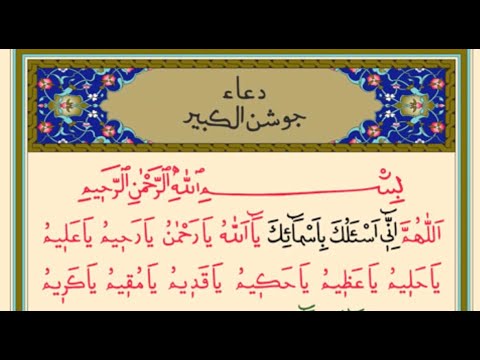 دعاء
جوشن الكبير
بِسْــــمِ اللّٰهِ الرَّحْمٰنِ الرَّحٖيمِ
اَللّٰهُمَّ اِنّٖٓي اَسْئَلُكَ بِاَسْمَٓائِكَ يَٓا اَللّٰهُ يَا رَحْمٰنُ يَا رَحٖيمُ يَا عَلٖيمُ
يَا حَلٖيمُ يَا عَظٖيمُ يَا حَكٖيمُ يَا قَدٖيمُ يَا مُقٖيمُ يَا كَرٖيمُ